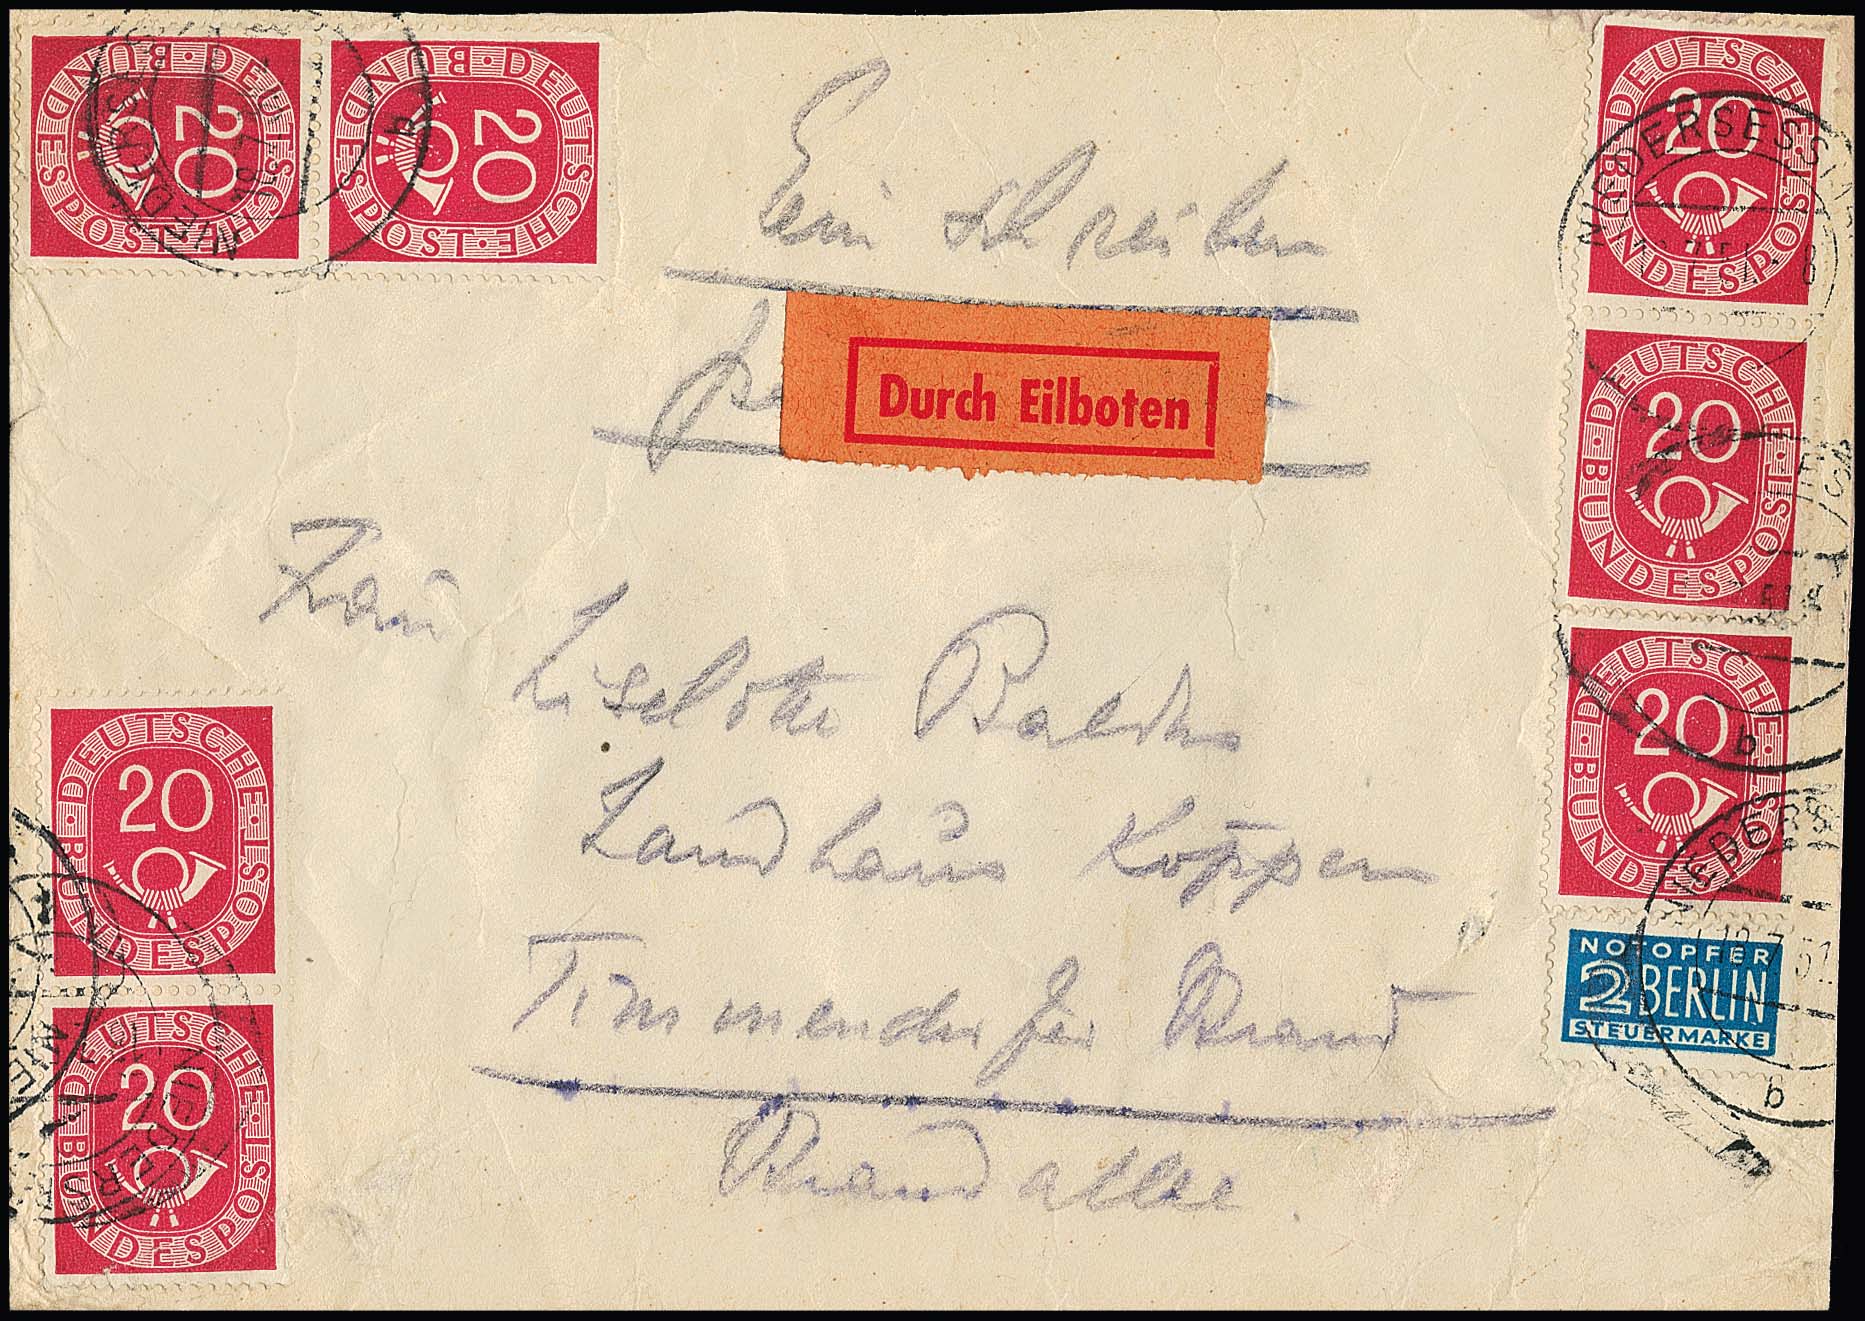 DEUTSCHE BUNDESPOST 20
DEUTSCHE BUNDESPOST 20
DEUTSCHE BUNDESPOST 20
NIEDERSE
Einschreiben
Durch Eilboten
DEUTSCHE BUNDESPOST 20
DEUTSCHE BUNDESPOST 20
Frau
Liselotte
Landhaus Köppen
Timmendorfer Strand
Strandallee
DEUTSCHE BUNDESPOST 20
DEUTSCHE BUNDESPOST 20
b
NOTOPFER
2 BERLIN
STEUERMARKE
b